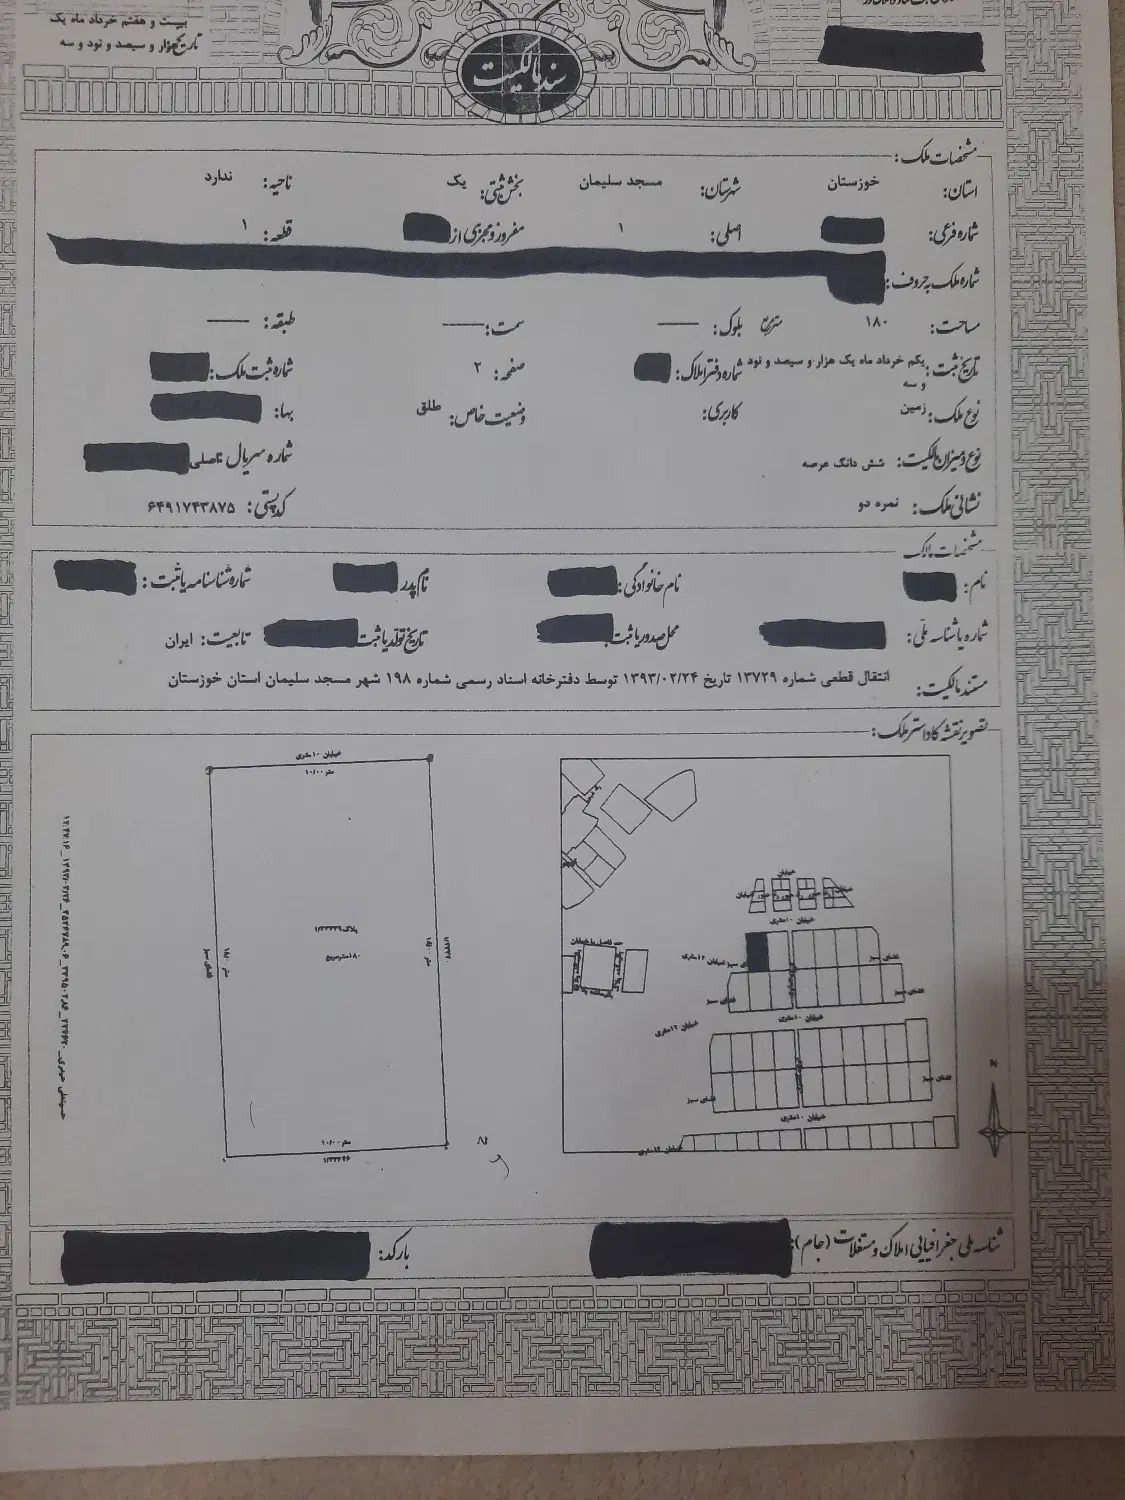 بیست و هفتم خرداد ماه یک
تاریخ: هزار و سیصد و نود و سه
سند مالکیت
مشخصات ملک:
استان: خوزستان شهرستان: مسجد سلیمان بخش ثبتی: یک ناحیه: ندارد
شماره فرعی: اصلی: ۱ مفروز و مجزی از قطعه: ۱
شماره ملک به حروف:
مساحت: ۱۸۰ مترمربع بلوک: سمت: طبقه:
تاریخ ثبت: یکم خرداد ماه یک هزار و سیصد و نود و سه شماره دفتر املاک: صفحه: ۲ شماره ثبت ملک:
نوع ملک: زمین کاربری: وضعیت خاص: طلق بها:
نوع و میزان مالکیت: شش دانگ عرصه شماره سریال اصلی
نشانی ملک: نمره دو کد پستی: ۶۴۹۱۷۴۳۸۷۵
مشخصات مالک
نام: نام خانوادگی: نام پدر شماره شناسنامه یا ثبت:
شماره یا شناسه ملی: محل صدور یا ثبت: تاریخ تولد یا ثبت تابعیت: ایران
مستند مالکیت: انتقال قطعی شماره ۱۳۷۲۹ تاریخ ۱۳۹۳/۰۲/۲۴ توسط دفترخانه اسناد رسمی شماره ۱۹۸ شهر مسجد سلیمان استان خوزستان
تصویر نقشه کاداستر ملک:
خیابان ۱۰ متری
۱۰/۰۰ متر
۱۸۰ مترمربع
فضای سبز
۱۰/۰۰ متر
خیابان
خیابان ۱۰ متری
فضای سبز
فضای سبز
خیابان ۱۰ متری
خیابان ۱۲ متری
فضای سبز
فضای سبز
خیابان ۱۰ متری
خیابان ۱۲ متری
N
شناسه ملی جغرافیایی املاک و مستغلات (جام): بارکد: